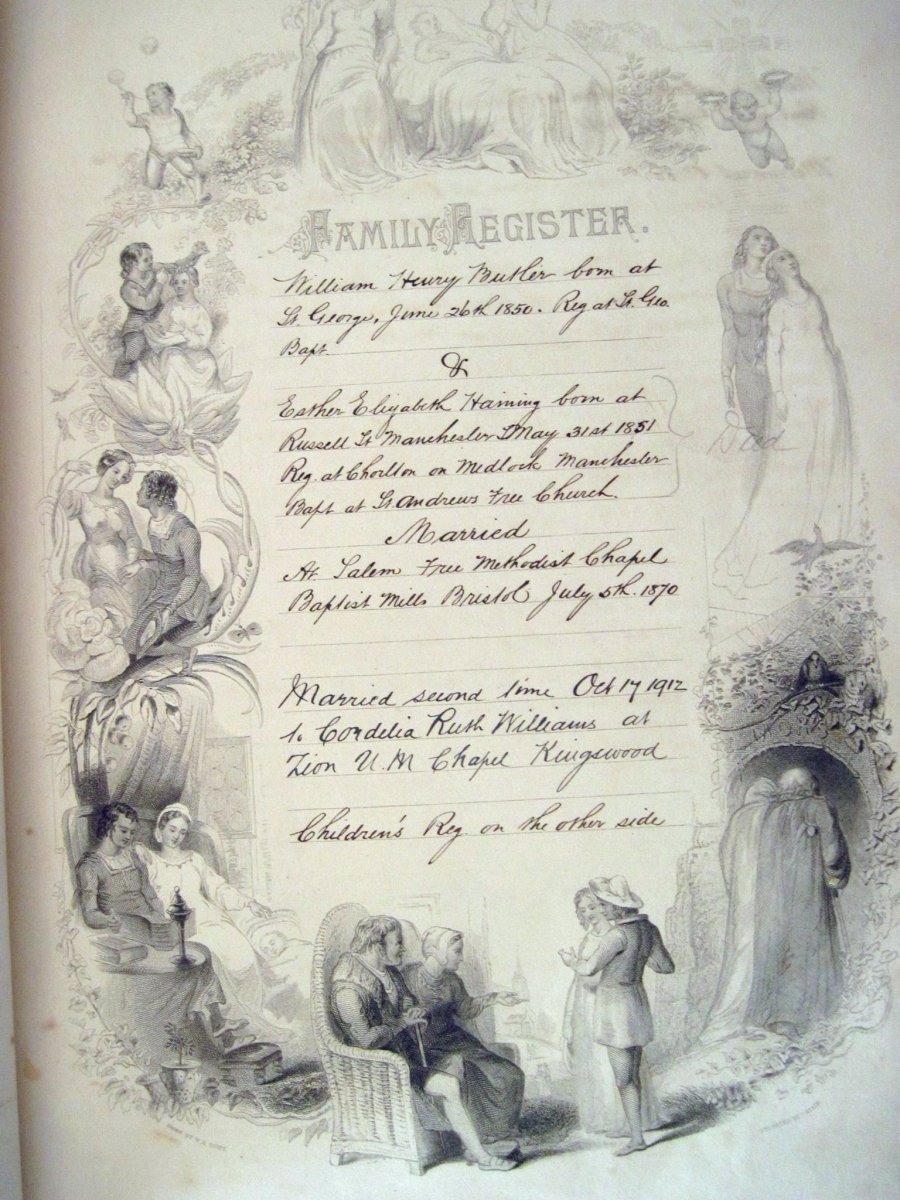 FAMILY REGISTER.
William Henry Butler born at
St. George, June 26th 1850. Reg at St. Geo.
Bapt
&
Esther Elizabeth Haining born at
Russell St Manchester May 31st 1851
Reg. at Chorlton on Medlock Manchester
Bapt at St. Andrews Free Church.
Dead
Married
At Salem Free Methodist Chapel
Baptist Mills Bristol July 5th. 1870
Married second time Oct 17 1912
to Cordelia Ruth Williams at
Zion U.M Chapel Kingswood
Children's Reg on the other side